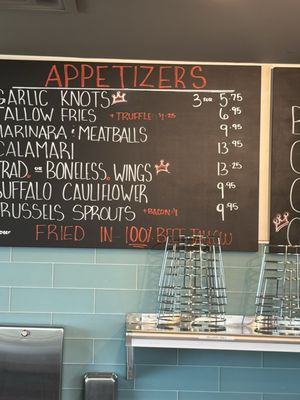 APPETIZERS
GARLIC KNOTS 3 FOR 5.75
TALLOW FRIES + TRUFFLE • $1.25 6.95
MARINARA & MEATBALLS 9.95
CALAMARI 13.95
TRAD. OR BONELESS WINGS 13.25
BUFFALO CAULIFLOWER 9.95
BRUSSELS SPROUTS + BACON • $1 9.95
FRIED IN 100% BEEF TALLOW